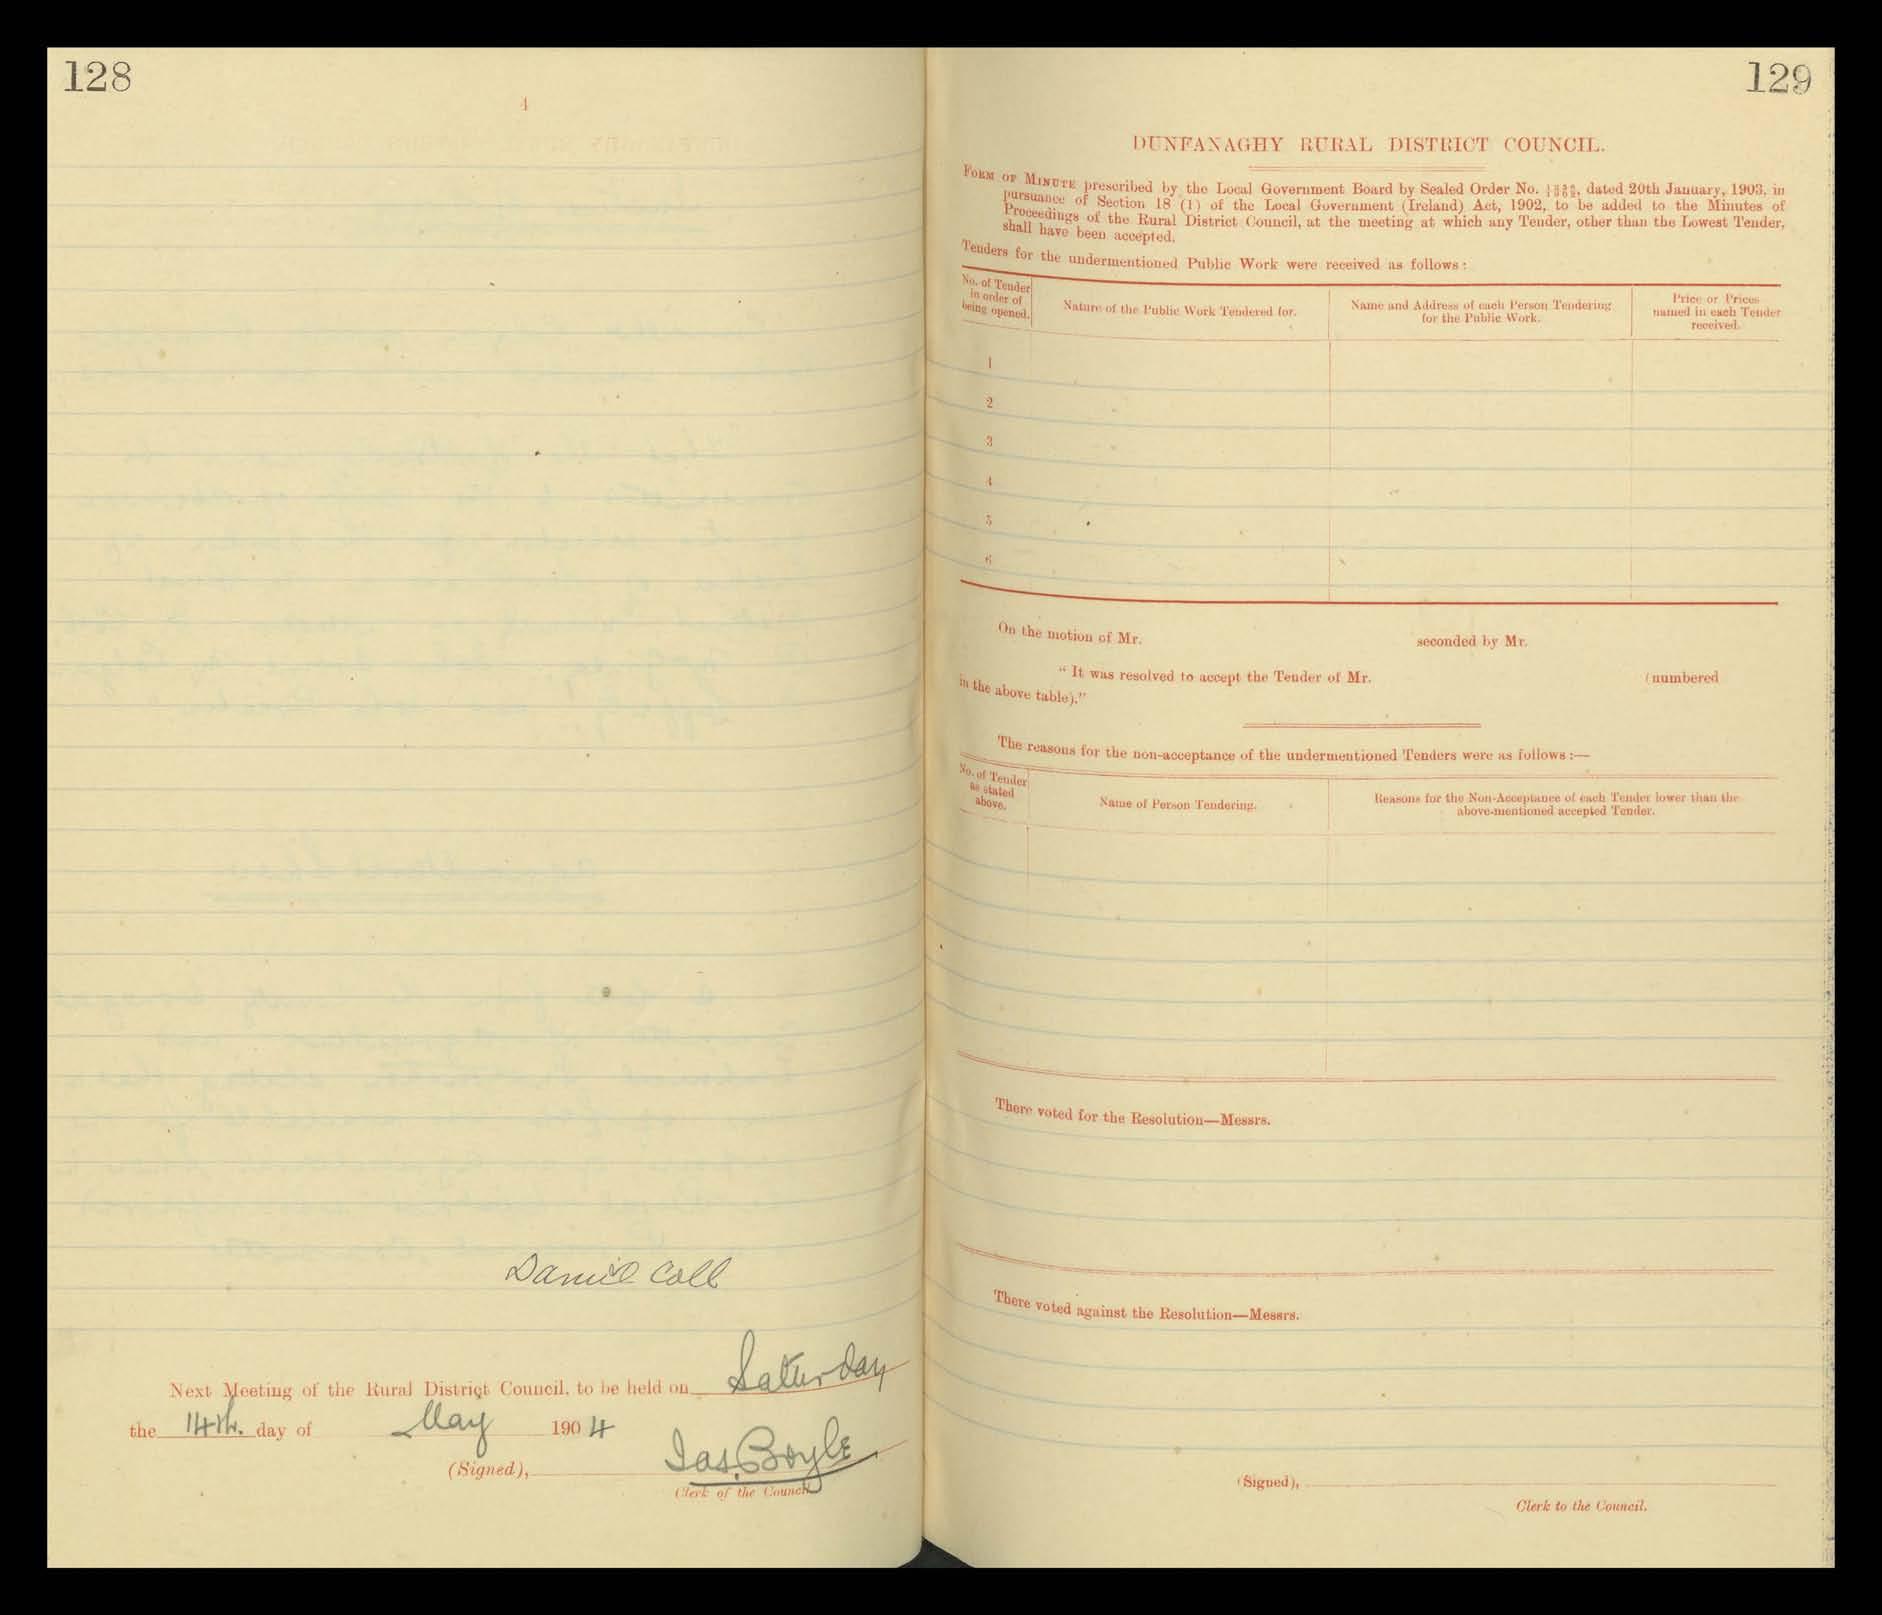 128
4
Daniel Coll
Next Meeting of the Rural District Council, to be held on Saturday
the 14th. day of May 1904
(Signed), Jas. Boyle
Clerk of the Council
129
DUNFANAGHY RURAL DISTRICT COUNCIL.
FORM OF MINUTE prescribed by the Local Government Board by Sealed Order No. dated 20th January, 1903, in
pursuance of Section 18 (1) of the Local Government (Ireland) Act, 1902, to be added to the Minutes of
Proceedings of the Rural District Council, at the meeting at which any Tender, other than the Lowest Tender,
shall have been accepted.
Tenders for the undermentioned Public Work were received as follows:
No. of Tender
in order of
being opened.
Nature of the Public Work Tendered for.
Name and Address of each Person Tendering
for the Public Work.
Price or Prices
named in each Tender
received.
1
2
3
4
5
6
On the motion of Mr. seconded by Mr.
"It was resolved to accept the Tender of Mr. (numbered
in the above table)."
The reasons for the non-acceptance of the undermentioned Tenders were as follows:—
No. of Tender
as stated
above.
Name of Person Tendering.
Reasons for the Non-Acceptance of each Tender lower than the
above-mentioned accepted Tender.
There voted for the Resolution—Messrs.
There voted against the Resolution—Messrs.
(Signed),
Clerk to the Council.